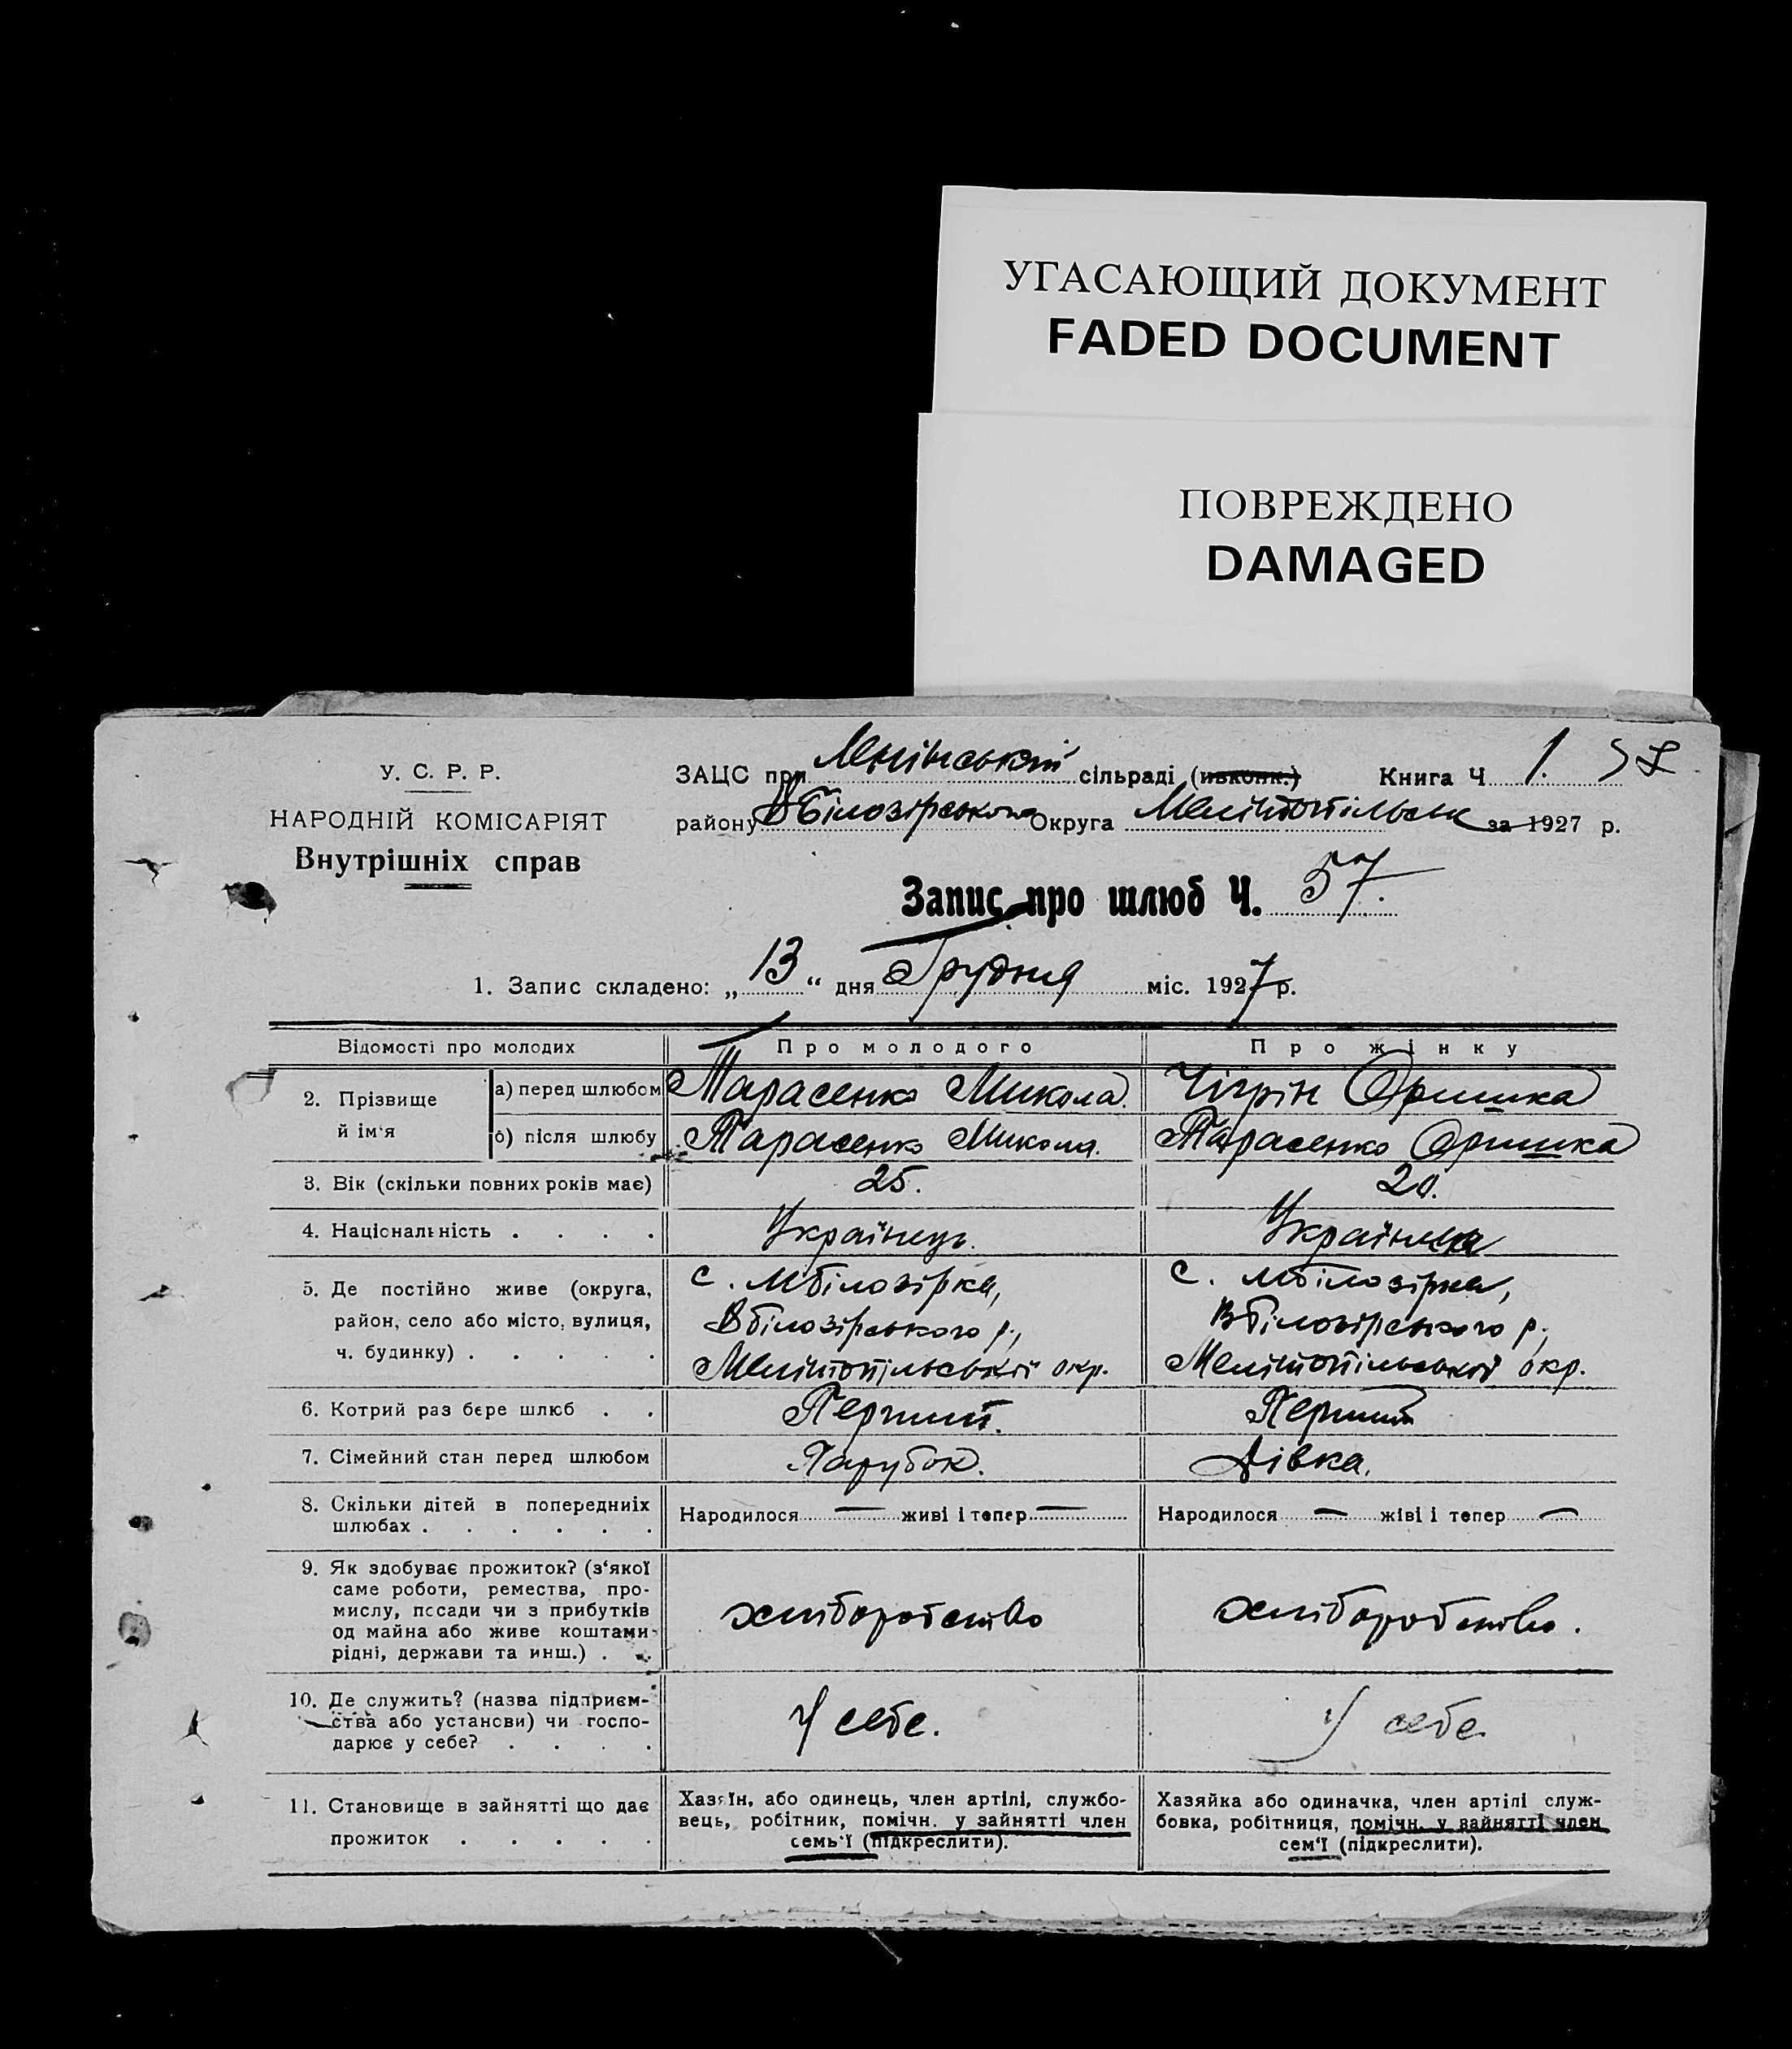 УГАСАЮЩИЙ ДОКУМЕНТ
FADED DOCUMENT
ПОВРЕЖДЕНО
DAMAGED
У. С. Р. Р.
НАРОДНІЙ КОМІСАРІЯТ
Внутрішніх справ
ЗАЦС при Ленінській сільраді (ивконк.) Книга Ч 1. 57
району ВБілозірського Округа Мелітопільськ за 1927 р.
Запис про шлюб Ч. 57.
1. Запис складено: „13“ дня Грудня міс. 1927 р.
Відомості про молодих
Про молодого
Про жінку
2. Прізвище й ім‘я
а) перед шлюбом
Тарасенко Микола.
Чігрін Оришка
б) після шлюбу
Тарасенко Микола.
Тарасенко Оришка
3. Вік (скільки повних років має)
25.
20.
4. Національність . . . .
Українець.
Українка
5. Де постійно живе (округа,
район, село або місто, вулиця,
ч. будинку) . . . . .
с. Мбілозірка,
Вбілозірського р.,
Мелітопільської окр.
с. Мбілозірка,
Вбілозірського р.,
Мелітопільської окр.
6. Котрий раз бере шлюб . .
Перший.
Перший
7. Сімейний стан перед шлюбом
Парубок.
Дівка.
8. Скільки дітей в попередниіх
шлюбах . . . . . .
Народилося — живі і тепер —
Народилося — жіві і тепер —
9. Як здобуває прожиток? (з‘якої
саме роботи, ремества, про-
мислу, посади чи з прибутків
од майна або живе коштами
рідні, держави та инш.) . .
хліборобство
хліборобство.
10. Де служить? (назва підприєм-
ства або установи) чи госпо-
дарює у себе? . . . .
У себе.
У себе
11. Становище в зайнятті що дає
прожиток . . . . .
Хазяїн, або одинець, член артілі, службо-
вець, робітник, помічн. у зайнятті член
семь‘ї (підкреслити).
Хазяйка або одиначка, член артілі служ-
бовка, робітниця, помічн. у зайнятті член
сем‘ї (підкреслити).